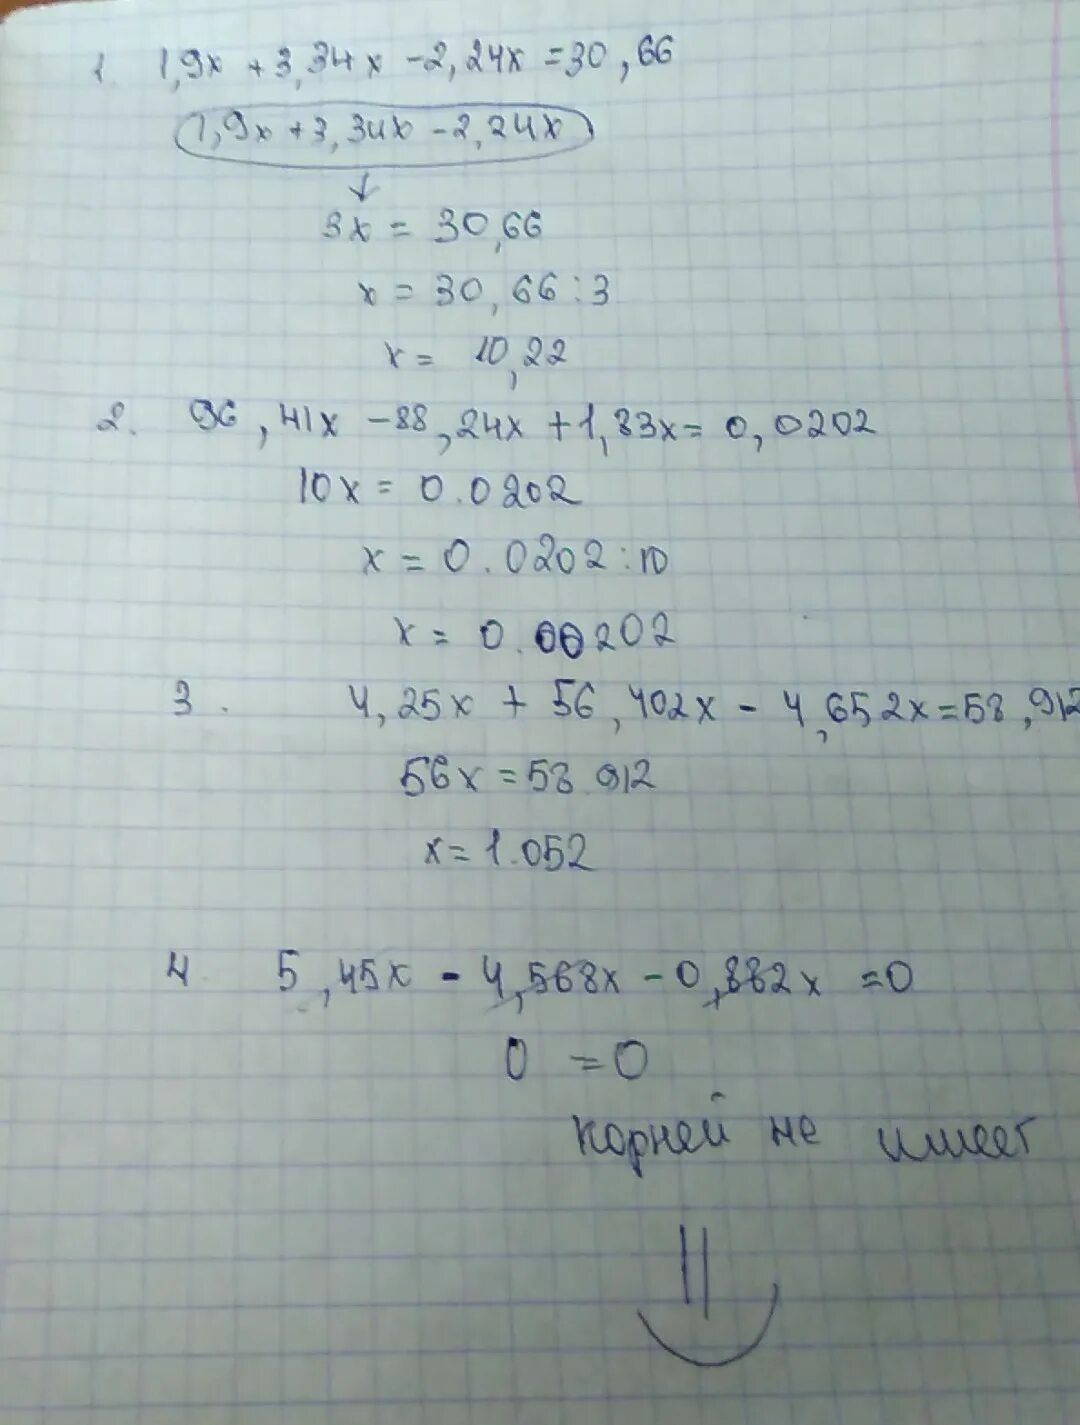 1. 1,9x + 3,34x - 2,24x = 30,66
1,9x + 3,34x - 2,24x
3x = 30,66
x = 30,66 : 3
x = 10,22
2. 96,41x - 88,24x + 1,83x = 0,0202
10x = 0.0202
x = 0.0202 : 10
x = 0.00202
3. 4,25x + 56,402x - 4,652x = 58,912
56x = 58.912
x = 1.052
4 5,45x - 4,568x - 0,882x = 0
0 = 0
корней не имеет